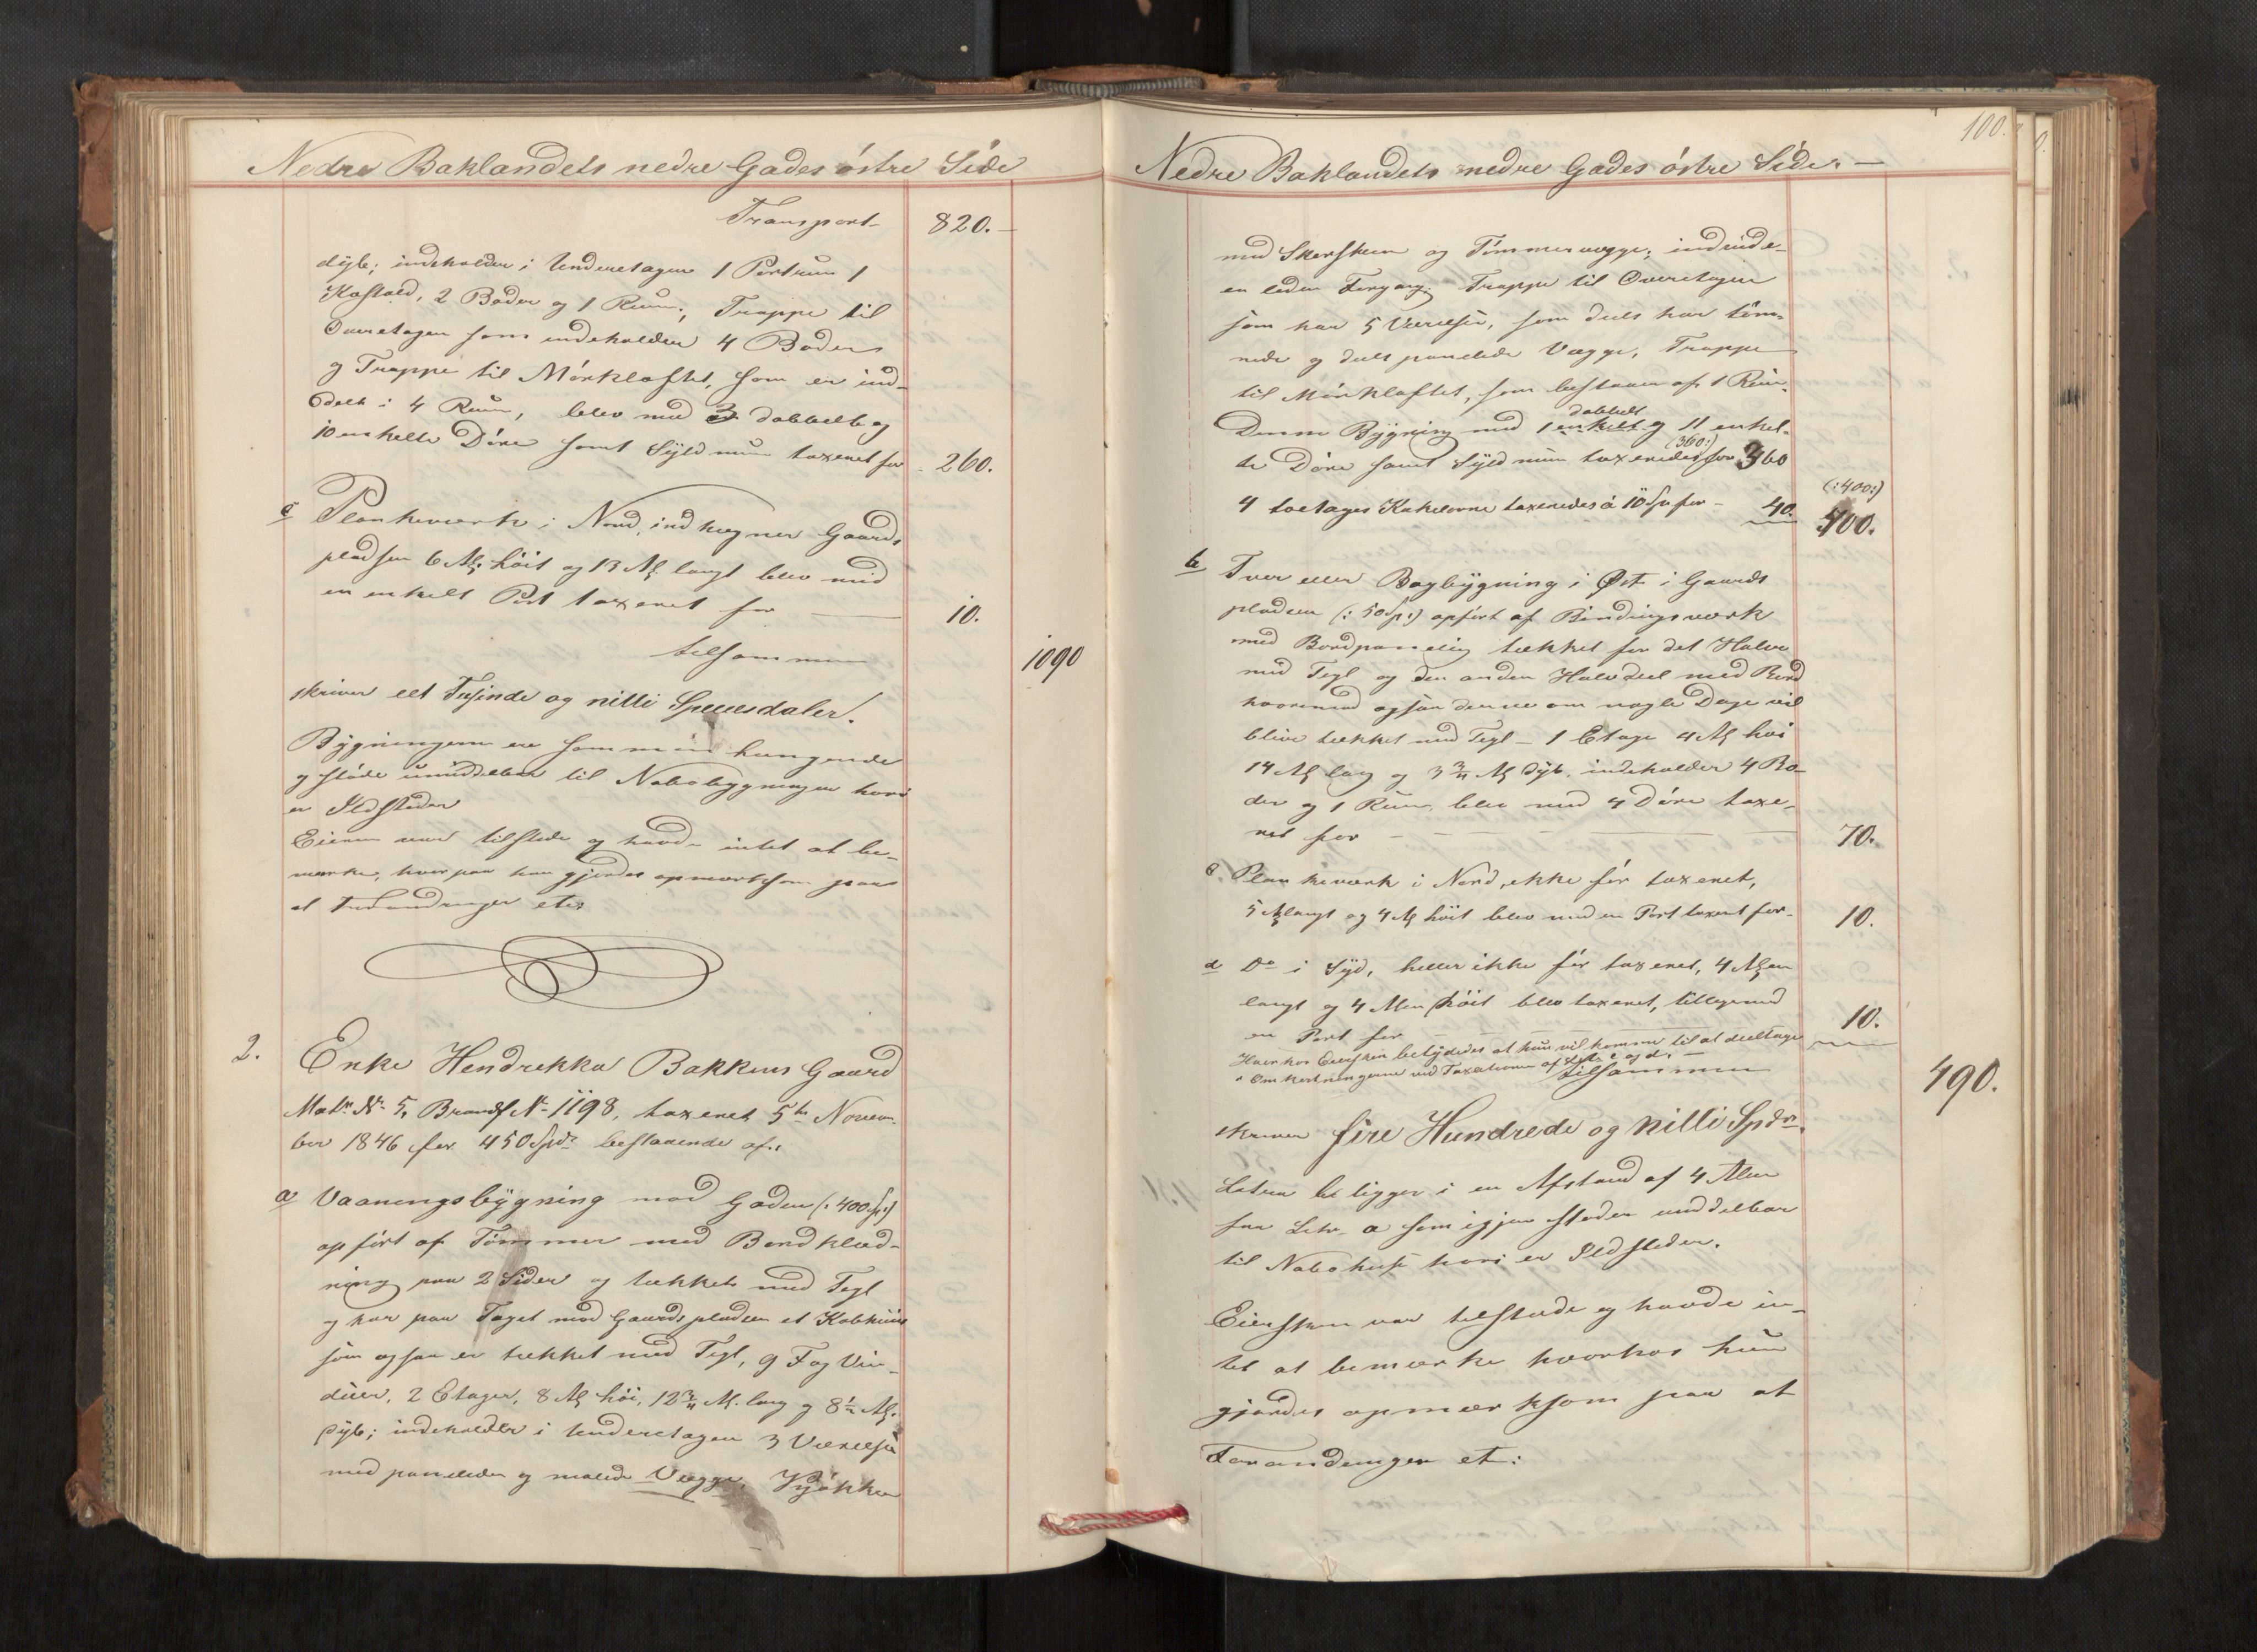 Nedre Baklandets nedre Gades östre Side
Transport 820.
dyb; indeholder i Underetagen 1 Portrum 1
Kostald, 2 Boder og 1 Rum; Trappe til
Overetagen som indeholder 4 Boder
og Trappe til Mörkloftet, som er ind-
delt i 4 Rum, blev med 3 dobbelte og
10 enkelte Döre samt Syldmuur taxeret for 260.
c Plankeværk i Nord, indhegner Gaards
pladsen 6 Al. höit og 13 Al. langt blev med
en enkelt Port taxeret for 10.
tilsammen 1090
skriver eet Tusinde og nitti Speciesdaler.
Bygningerne ere sammenhængende
og støde umiddelbar til Nabobygninger hvori
er Ildsteder
Eieren var tilstede og havde intet at be-
mærke, hvorpaa han gjordes opmærksom paa
at Forandringer etc.
2. Enke Hendrekka Bakkens Gaard
Matr. No. 5, Brandf. No. 1198, taxeret 5te Novem-
ber 1846 for 450 Spdr. bestaaende af:
a Vaaningsbygning mod Gaden (: 400 Sp:)
opfört af Tømmer med Bordklæd-
ning paa 2 Sider og tækket med Tegl
og har paa Taget mod Gaardspladsen et Kobhuus
som ogsaa er tækket med Tegl, 9 Fag Vin-
duer, 2 Etager, 8 Al. höi, 12 3/4 Al. lang og 8 1/2 Al.
dyb; indeholder i Underetagen 3 Værelser
med panelede og malede Vægge, Kjökken
100.
Nedre Baklandets nedre Gades östre Side.
med Skorsteen og Tömmervægge; indvide-
en leden Forgang; Trappe til Overetagen
som har 5 Værelser, som deels har töm-
rede og deels panelede Vægge, Trappe
til Mörkloftet, som bestaaer af 1 Rum.
dobbelt
Denne Bygning med 1 enkelt og 11 enkel-
(360:)
te Döre samt Syldmuur taxeredes for 360
(:400:)
4 toetages Kakelovne taxeredes á 10 Sp for 40. 400.
b Tver eller Bagbygning i Øst i Gaards
pladsen (: 50 Sp:) opført af Bindingsværk
med Bordpaneling tækket for det Halve
med Tegl og den anden Halvdeel med Bord
hvormed ogsaa denne om nogle Dage vil
blive tækket med Tegl – 1 Etage 4 Al. höi
14 Al. lang og 3 3/4 Al. dyb, indeholder 4 Bo-
der og 1 Rum, blev med 4 Döre taxe-
ret for 70.
c. Plankeværk i Nord, ikke för taxeret,
5 Al. langt og 4 Al. höit blev med en Port taxeret for 10.
d Do i Syd, heller ikke för taxeret, 4 Alen
langt og 4 Alen höit blev taxeret, tilligemed
en Port for 10.
Hvorhos Eiersken betydedes at hun vil komme til at deeltage
i Omkostningerne ved Taxationen af Litr. c og d. –
tilsammen 490.
skriver fire Hundrede og nitti Spdr.
Litra b ligger i en Afstand af 4 Alen
fra Litr. a som igjen støder umiddelbar
til Nabohuse hvori er Ildsteder.
Eiersken var tilstede og havde in-
tet at bemærke hvorhos hun
gjordes opmærksom paa at
Forandringer etc: